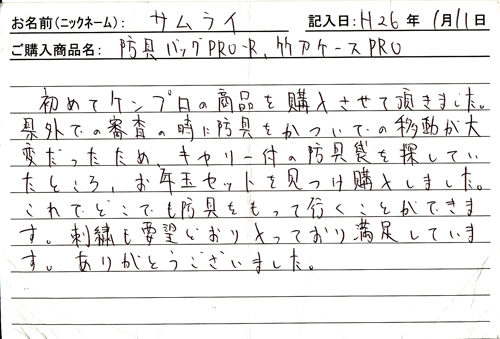 お名前(ニックネーム): サムライ 記入日:H26年 1月11日
ご購入商品名: 防具バッグPRO-R、竹刀ケースPRO
初めてケンプロの商品を購入させて頂きました。
県外での審査の時に防具をかついでの移動が大
変だったため、キャリー付の防具袋を探してい
たところ、お年玉セットを見つけ購入しました。
これでどこでも防具をもって行くことができま
す。刺繍も要望どおり入っており満足していま
す。ありがとうございました。